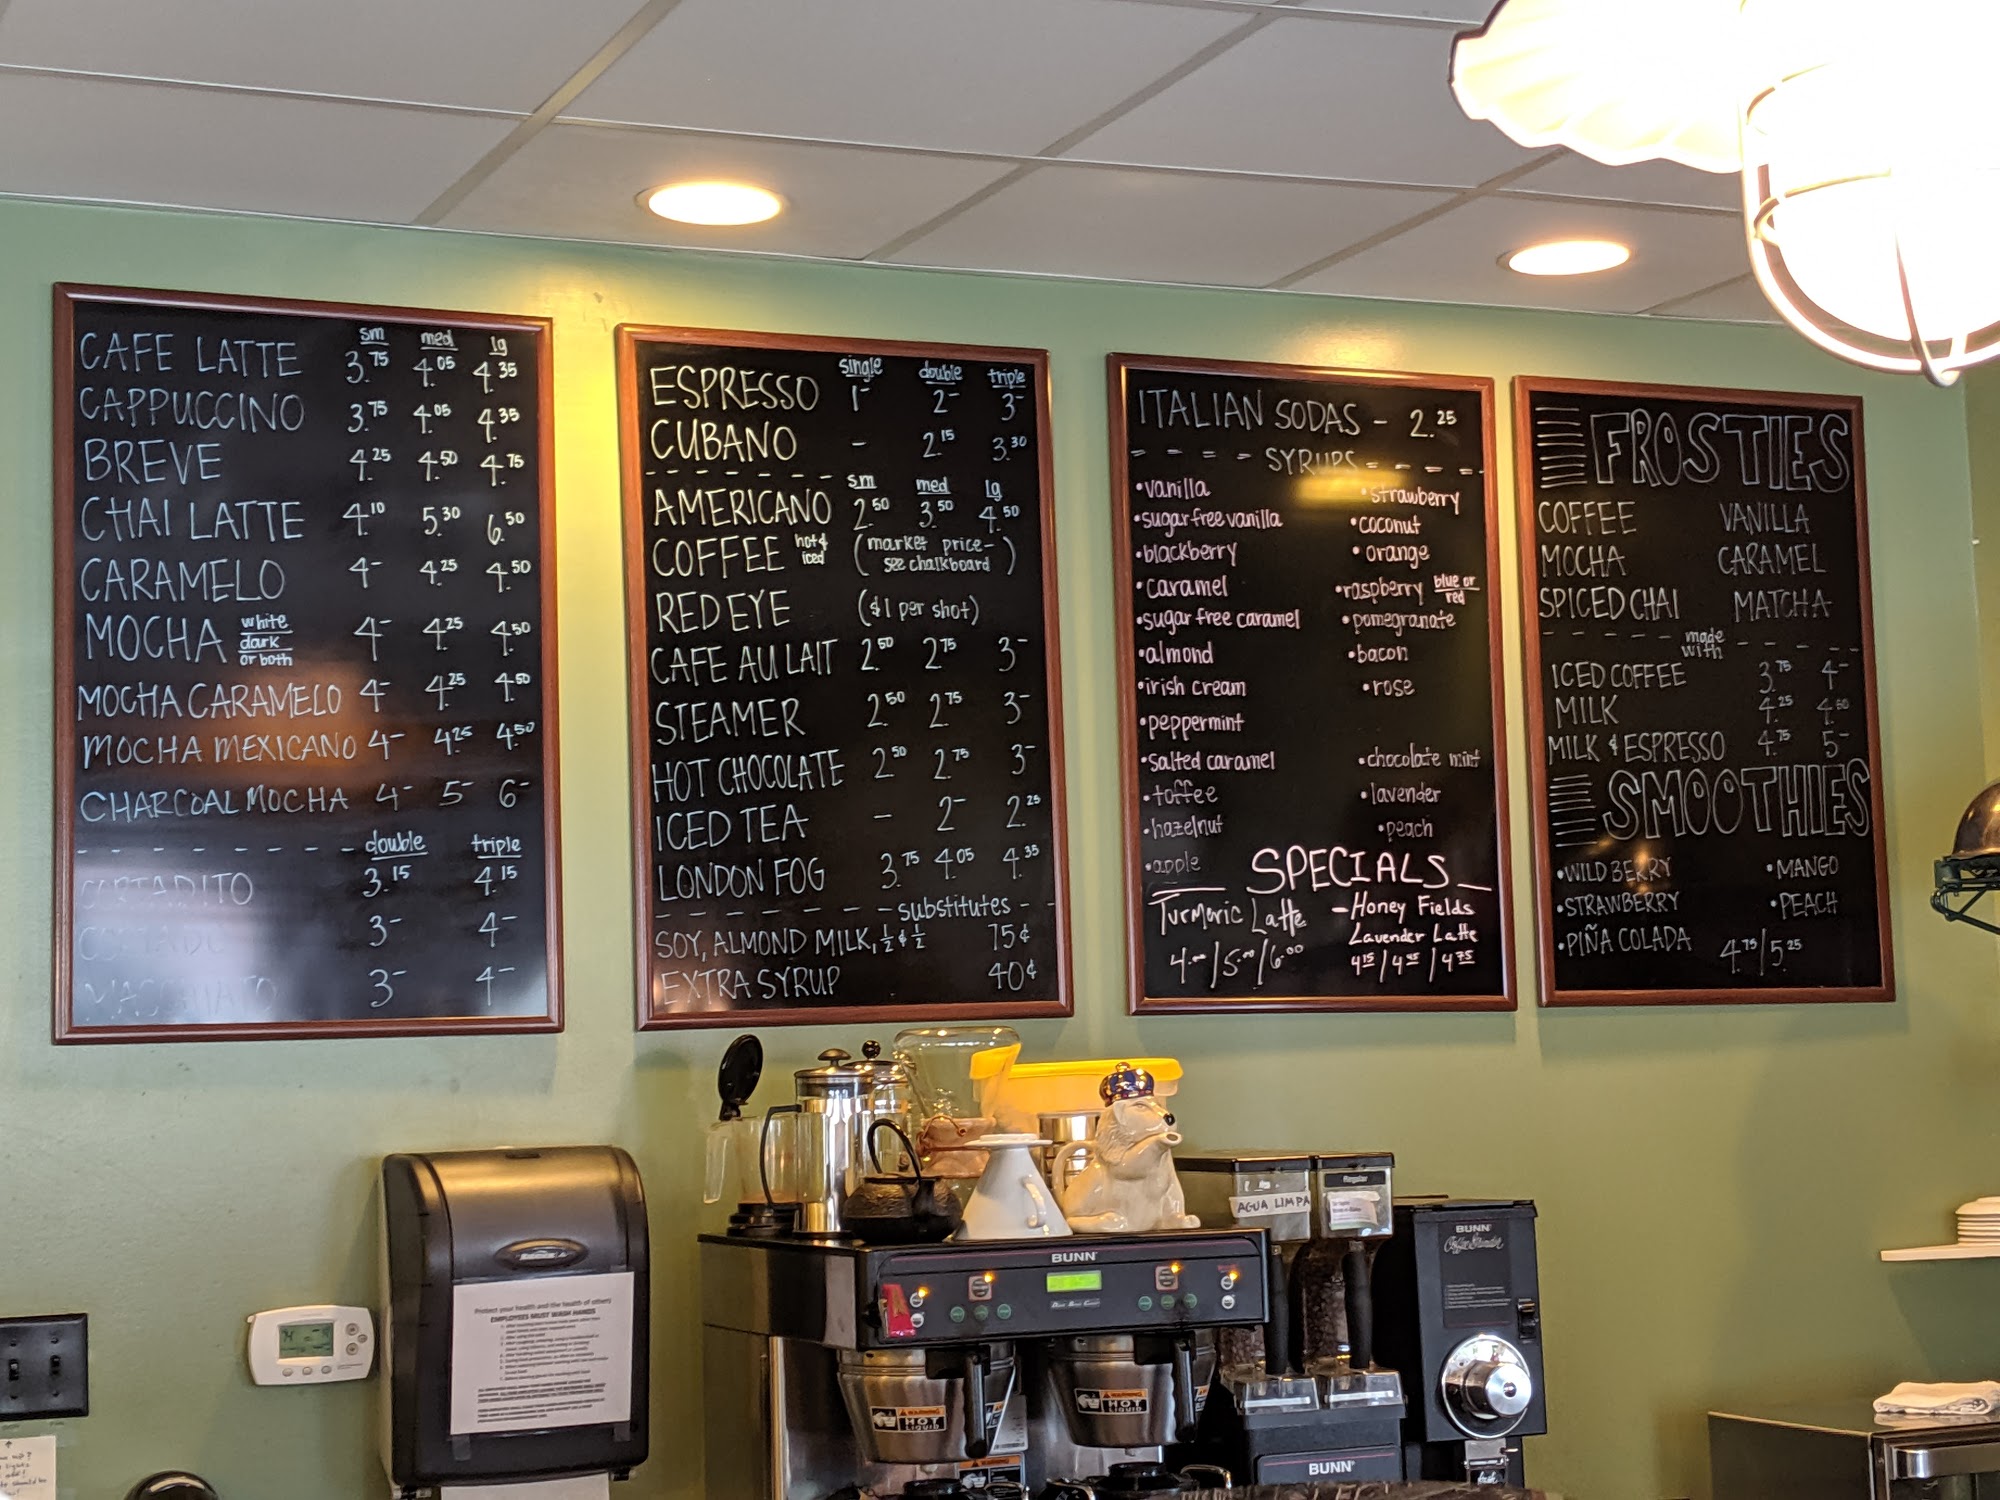 sm med lg
CAFE LATTE 3.75 4.05 4.35
CAPPUCCINO 3.75 4.05 4.35
BREVE 4.25 4.50 4.75
CHAI LATTE 4.10 5.30 6.50
CARAMELO 4- 4.25 4.50
MOCHA white dark or both 4- 4.25 4.50
MOCHA CARAMELO 4- 4.25 4.50
MOCHA MEXICANO 4- 4.25 4.50
CHARCOAL MOCHA 4- 5- 6-
double triple
CORTADITO 3.15 4.15
CORTADO 3- 4-
MACCHIATO 3- 4-
single double triple
ESPRESSO 1- 2- 3-
CUBANO - 2.15 3.30
sm med lg
AMERICANO 2.50 3.50 4.50
COFFEE hot & iced (market price- see chalkboard)
RED EYE ($1 per shot)
CAFE AU LAIT 2.50 2.75 3-
STEAMER 2.50 2.75 3-
HOT CHOCOLATE 2.50 2.75 3-
ICED TEA - 2- 2.25
LONDON FOG 3.75 4.05 4.35
substitutes
SOY, ALMOND MILK, ½ & ½ 75¢
EXTRA SYRUP 40¢
ITALIAN SODAS - 2.25
SYRUPS
•vanilla
•sugar free vanilla
•blackberry
•caramel
•sugar free caramel
•almond
•irish cream
•peppermint
•salted caramel
•toffee
•hazelnut
•apple
•strawberry
•coconut
•orange
•raspberry blue or red
•pomegranate
•bacon
•rose
•chocolate mint
•lavender
•peach
SPECIALS
Turmeric Latte
4.00/5.00/6.00
-Honey Fields
Lavender Latte
4.15/4.45/4.75
FROSTIES
COFFEE VANILLA
MOCHA CARAMEL
SPICED CHAI MATCHA
made with
ICED COFFEE 3.75 4-
MILK 4.25 4.50
MILK & ESPRESSO 4.75 5-
SMOOTHIES
•WILD BERRY •MANGO
•STRAWBERRY •PEACH
•PIÑA COLADA 4.75/5.25
AGUA LIMPA
Regular
BUNN
BUNN
Coffee Grinder
Protect your health and the health of others!
EMPLOYEES MUST WASH HANDS
WARNING
HOT
LIQUID
WARNING
HOT
LIQUID
WARNING
BUNN